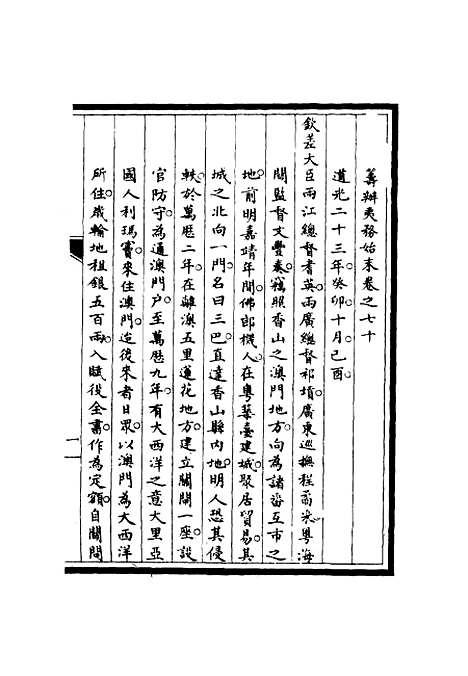 籌辦夷務始末卷之七十
道光二十三年癸卯十月己酉
欽差大臣兩江總督耆英兩廣總督祁𡎴廣東巡撫程矞采粵海
關監督文豐奏竊照香山之澳門地方向為諸番互市之
地前明嘉靖年間佛郎機人在粵築臺建城聚居貿易其
城之北向一門名曰三巴直達香山縣內地明人恐其侵
軼於萬曆二年在離澳五里蓮花地方建立關閘一座設
官防守為通澳門戶至萬曆九年有大西洋之意大里亞
國人利瑪竇來住澳門迨後來者日眾以澳門為大西洋
所住歲輸地租銀五百兩入賦役全書作為定額自關閘